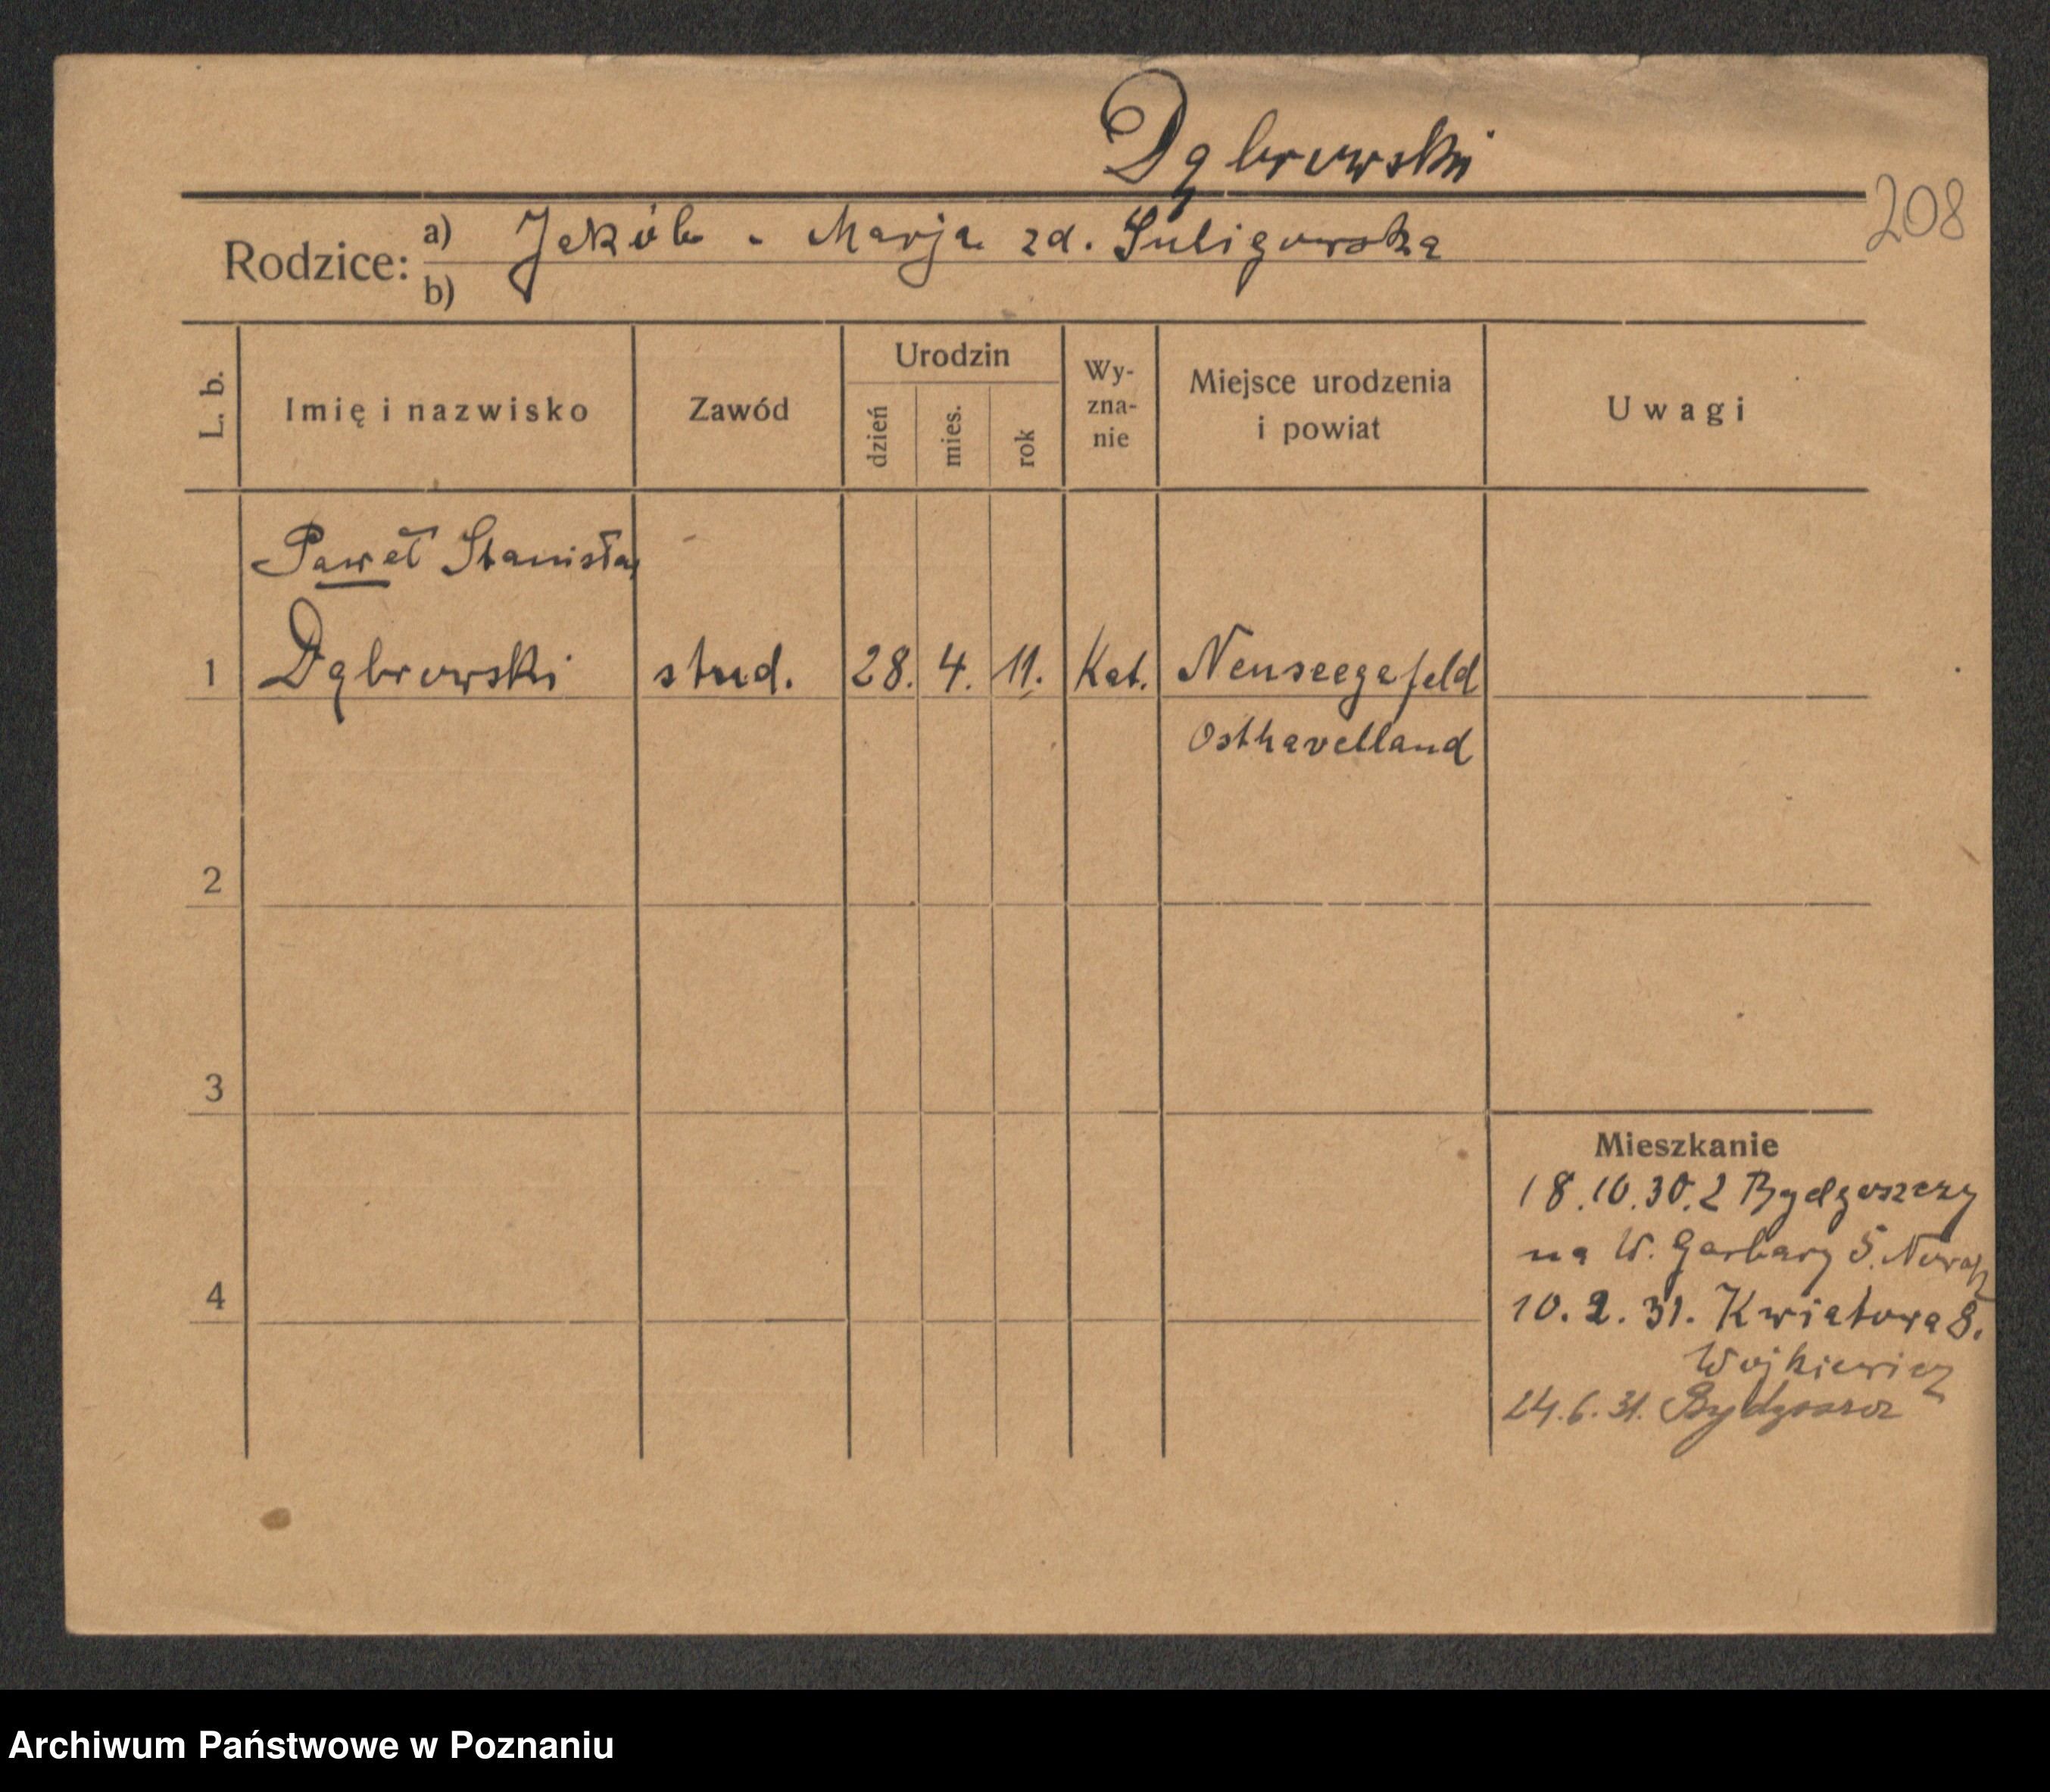 Dąbrowski
208
Rodzice: a) Jakób - Marja zd. Suligowska
b)
L. b.
Imię i nazwisko
Zawód
Urodzin
dzień
mies.
rok
Wy-
zna-
nie
Miejsce urodzenia
i powiat
Uwagi
Paweł Stanisław
1 Dąbrowski stud. 28. 4. 11. Kat. Neuseegefeld
Osthavelland
2
3
Mieszkanie
18.10.30. z Bydgoszczy
na W. Garbary 5.
4
10. 2. 31. Kwiatowa 8.
Wojkiewicz
24.6.31. Bydgoszcz
Archiwum Państwowe w Poznaniu